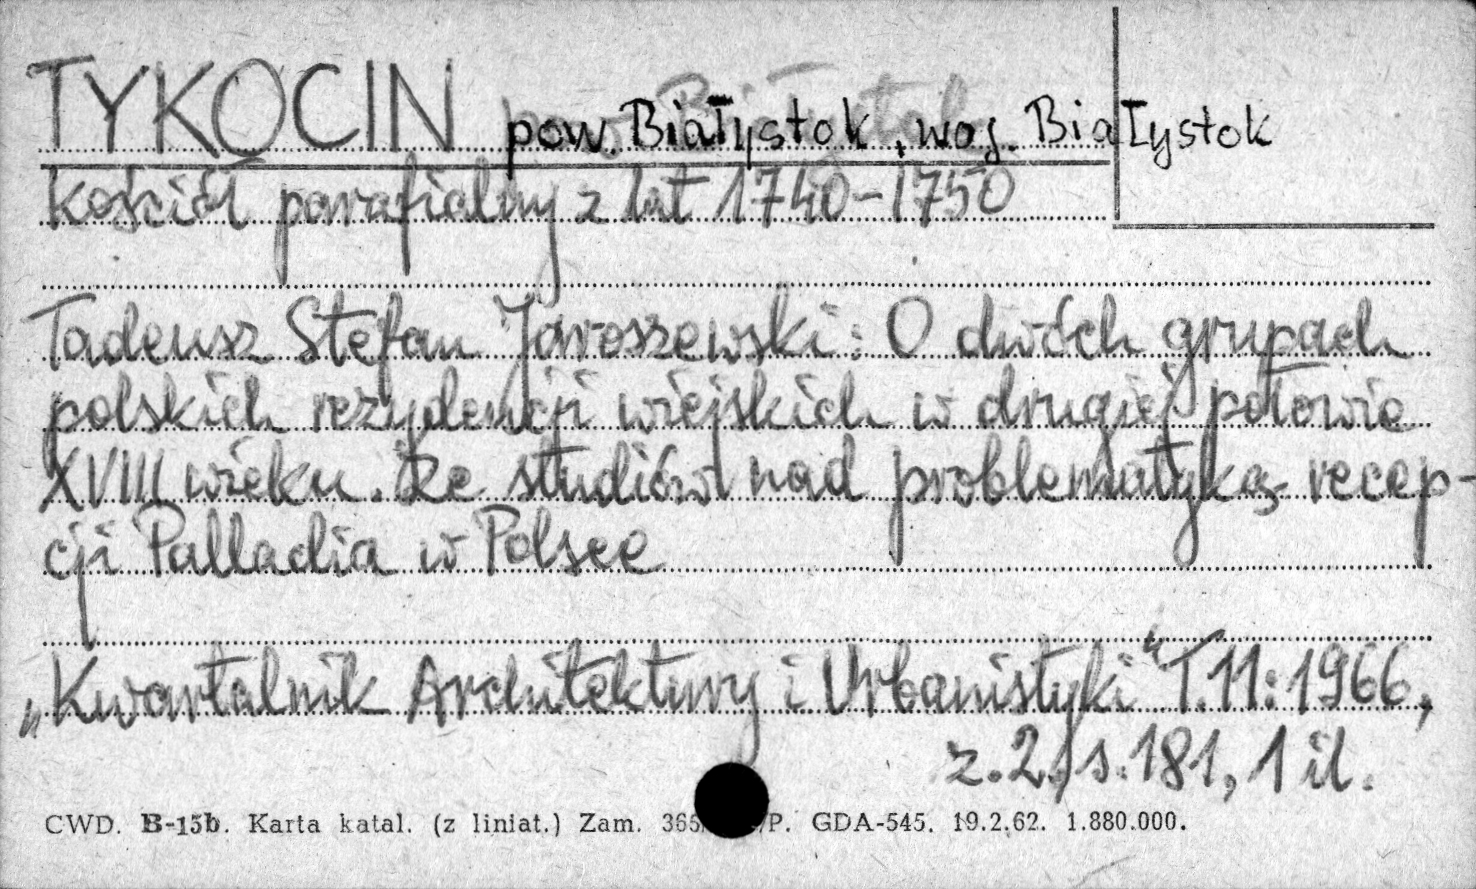 TYKOCIN pow. Białystok, woj. Białystok
kościół parafialny z lat 1740-1750
Tadeusz Stefan Jaroszewski: O dwóch grupach
polskich rezydencji wiejskich w drugiej połowie
XVIII wieku. Ze studiów nad problematyką recep-
cji Palladia w Polsce
„Kwartalnik Architektury i Urbanistyki" T.11:1966,
z.2, s.181, 1 il.
CWD. B-15b. Karta katal. (z liniat.) Zam. 365 /P. GDA-545. 19.2.62. 1.880.000.